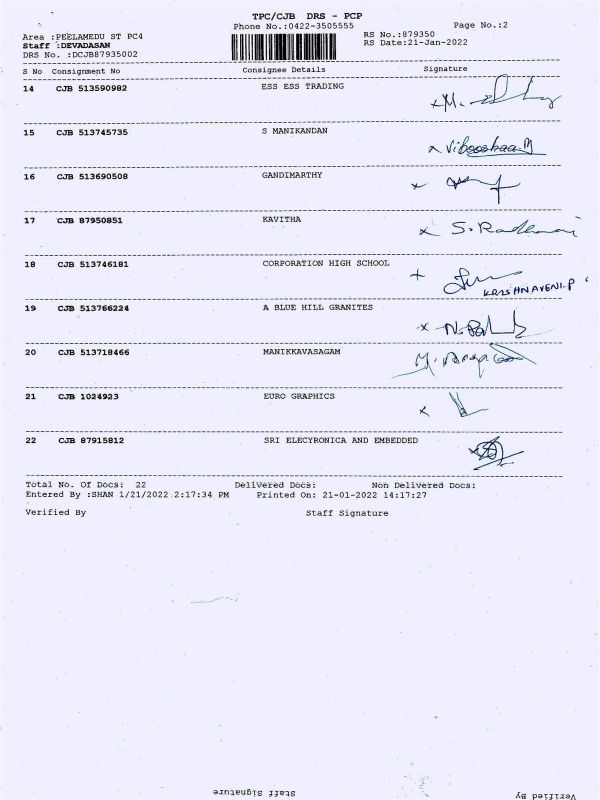 TPC/CJB DRS - PCP
Phone No.:0422-3505555 Page No.:2
Area :PEELAMEDU ST PC4 RS No.:879350
Staff :DEVADASAN RS Date:21-Jan-2022
DRS No. :DCJB87935002
S No Consignment No Consignee Details Signature
14 CJB 513590982 ESS ESS TRADING
15 CJB 513745735 S MANIKANDAN
x Vibooshaa.M
16 CJB 513690508 GANDIMARTHY
17 CJB 87950851 KAVITHA
18 CJB 513746181 CORPORATION HIGH SCHOOL
KRISHNAVENI.P
19 CJB 513766224 A BLUE HILL GRANITES
20 CJB 513718466 MANIKKAVASAGAM
21 CJB 1024923 EURO GRAPHICS
22 CJB 87915812 SRI ELECYRONICA AND EMBEDDED
Total No. Of Docs: 22 Delivered Docs: Non Delivered Docs:
Entered By :SHAN 1/21/2022 2:17:34 PM Printed On: 21-01-2022 14:17:27
Verified By Staff Signature
Staff Signature Verified By